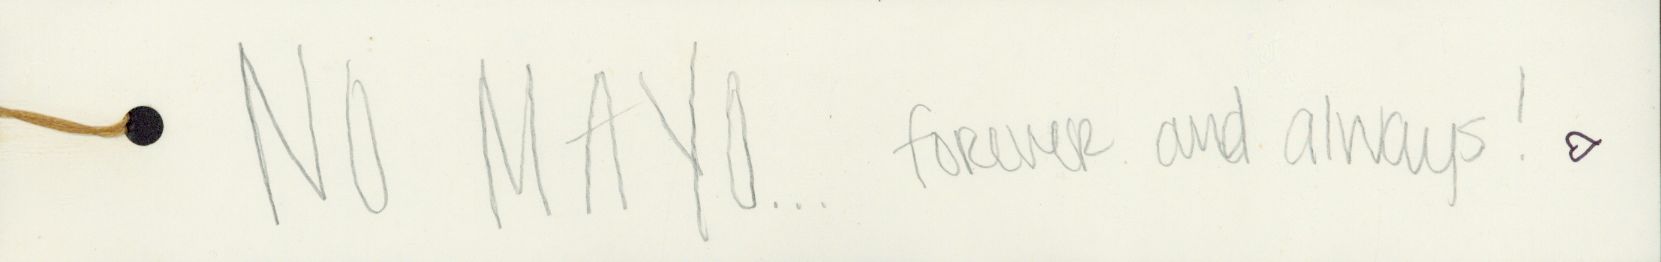 NO MAYO... forever and always! ♡